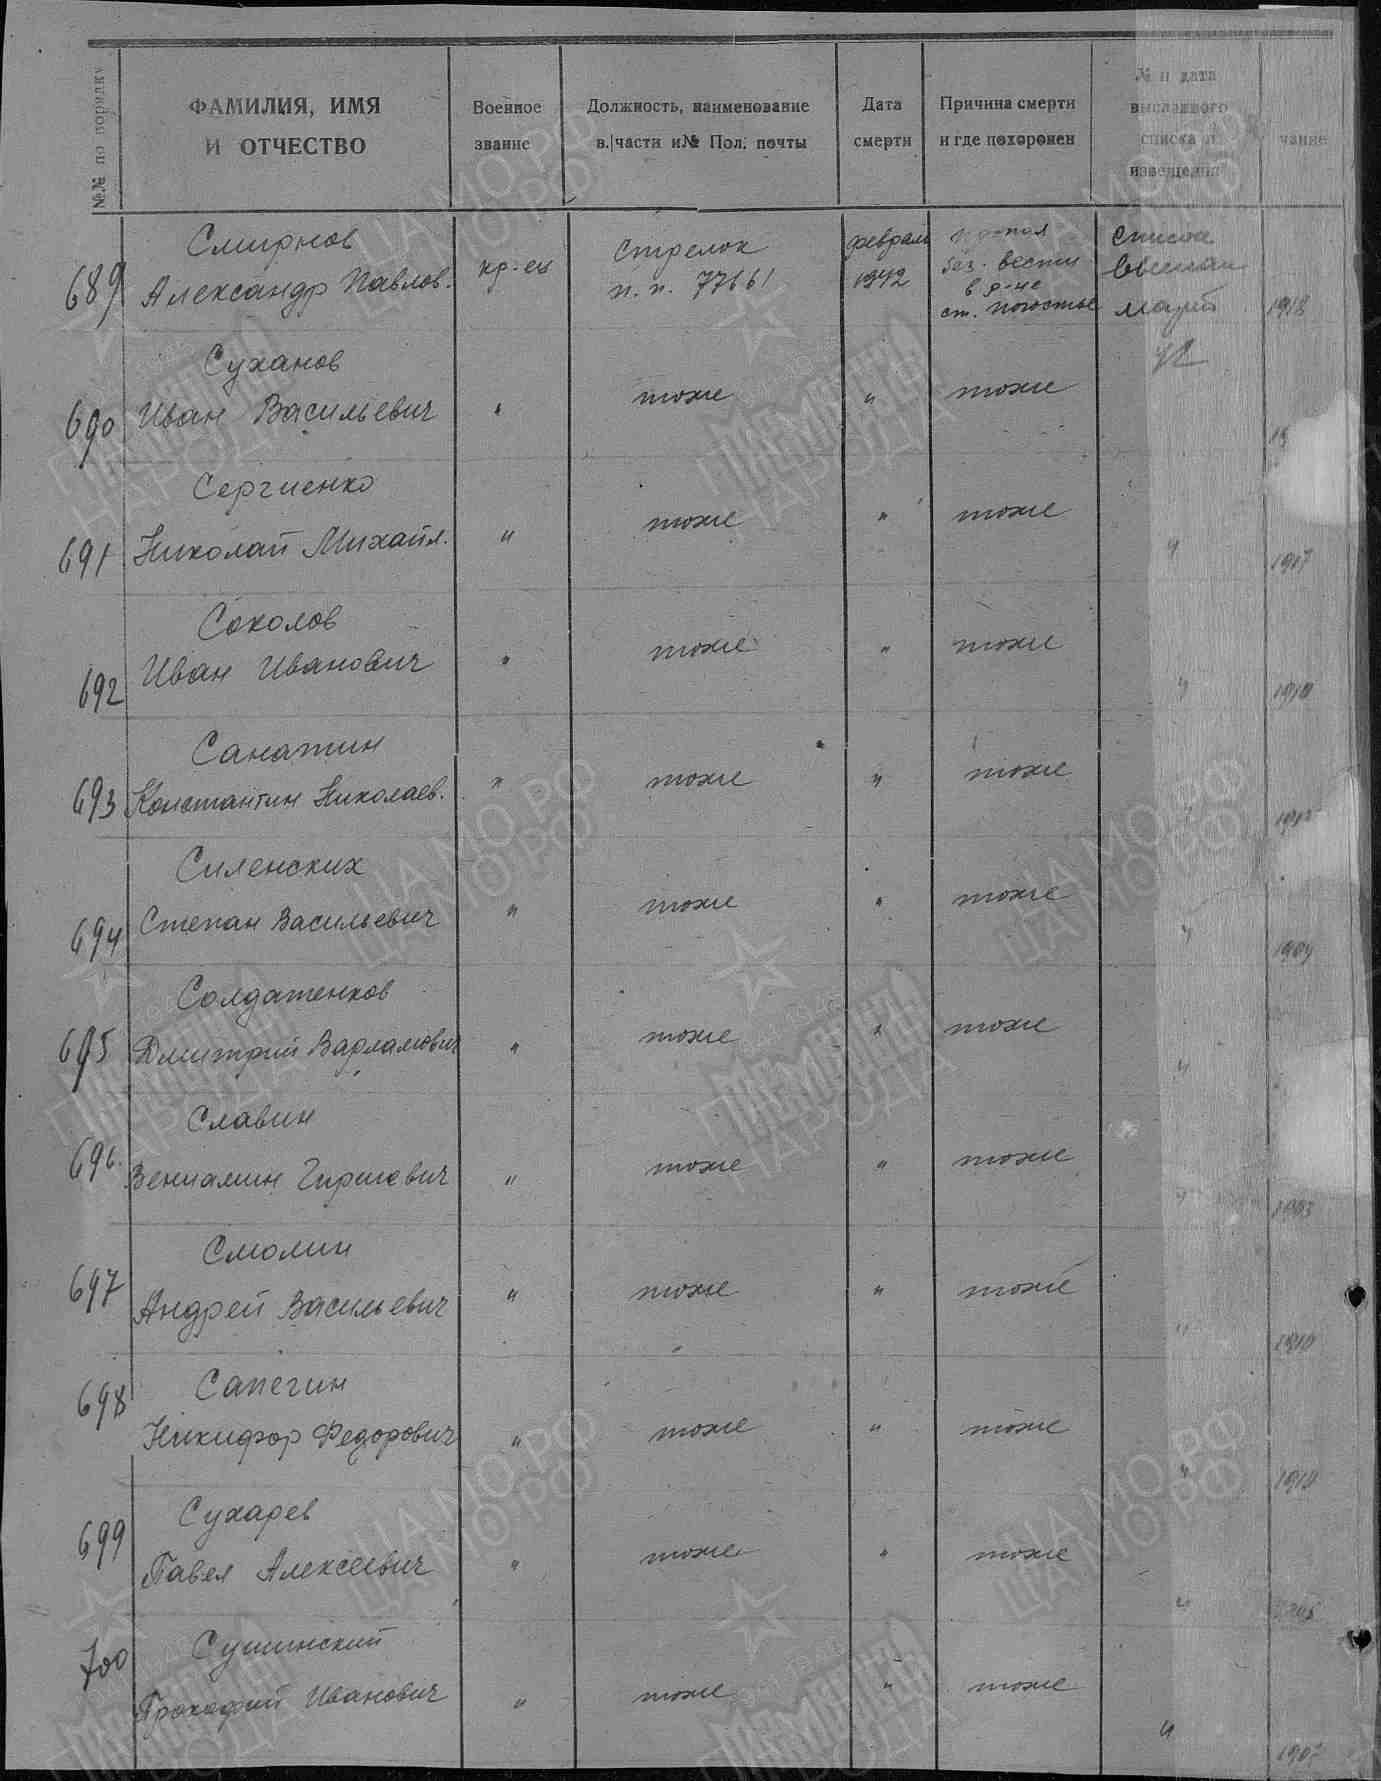 №№ по порядку
ФАМИЛИЯ, ИМЯ
И ОТЧЕСТВО
Военное
звание
Должность, наименование
в/части и № Пол. почты
Дата
смерти
Причина смерти
и где похоронен
№ и дата
высланного
списка и
извещения
чание
689
Смирнов
Александр Павлов.
кр-ец
стрелок
п.п. 77661
февраль
1942
пропал
без-вести
в р-не
ст. Погостье
список
выслан
март
42
1918
690
Суханов
Иван Васильевич
"
тоже
"
тоже
691
Сергиенко
Николай Михайл.
"
тоже
"
тоже
"
1917
692
Соколов
Иван Иванович
"
тоже
"
тоже
"
1910
693
Санатин
Константин Николаев.
"
тоже
"
тоже
694
Силенских
Степан Васильевич
"
тоже
"
тоже
"
1904
695
Солдатенков
Дмитрий Варламович
"
тоже
"
тоже
"
696
Славин
Вениамин Гиршевич
"
тоже
"
тоже
"
1903
697
Смолин
Андрей Васильевич
"
тоже
"
тоже
"
1910
698
Сапегин
Никифор Федорович
"
тоже
"
тоже
"
1910
699
Сухарев
Павел Алексеевич
"
тоже
"
тоже
"
700
Сушинский
Прокофий Иванович
"
тоже
"
тоже
"
1907
ЦАМО РФ
ПАМЯТЬ
НАРОДА